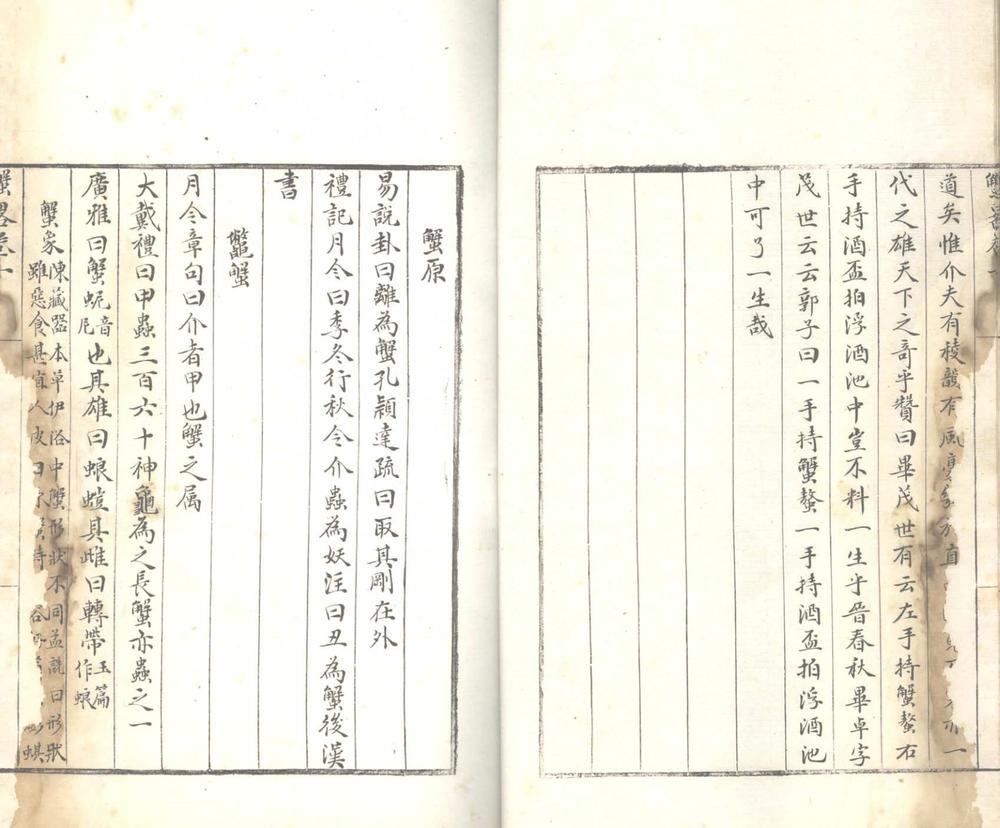 道矣惟介夫有稜毅有風
代之雄天下之奇乎贊曰畢茂世有云左手持蟹螯右
手持酒盃拍浮酒池中豈不料一生乎晉春秋畢卓字
茂世云云郭子曰一手持蟹螯一手持酒盃拍浮酒池
中可了一生哉
蟹原
易說卦曰離為蟹孔穎達疏曰取其剛在外
禮記月令曰季冬行秋令介蟲為妖注曰丑為蟹後漢
書
蟹
月令章句曰介者甲也蟹之属
大戴禮曰甲蟲三百六十神龜為之長蟹亦蟲之一
廣雅曰蟹蚭音尼也其雄曰蜋螘其雌曰轉帶玉篇作蜋
蟹象陳藏器本草伊洛中蟹形狀不同孟詵曰形狀
雖惡食甚宜人皮
蟹略卷一